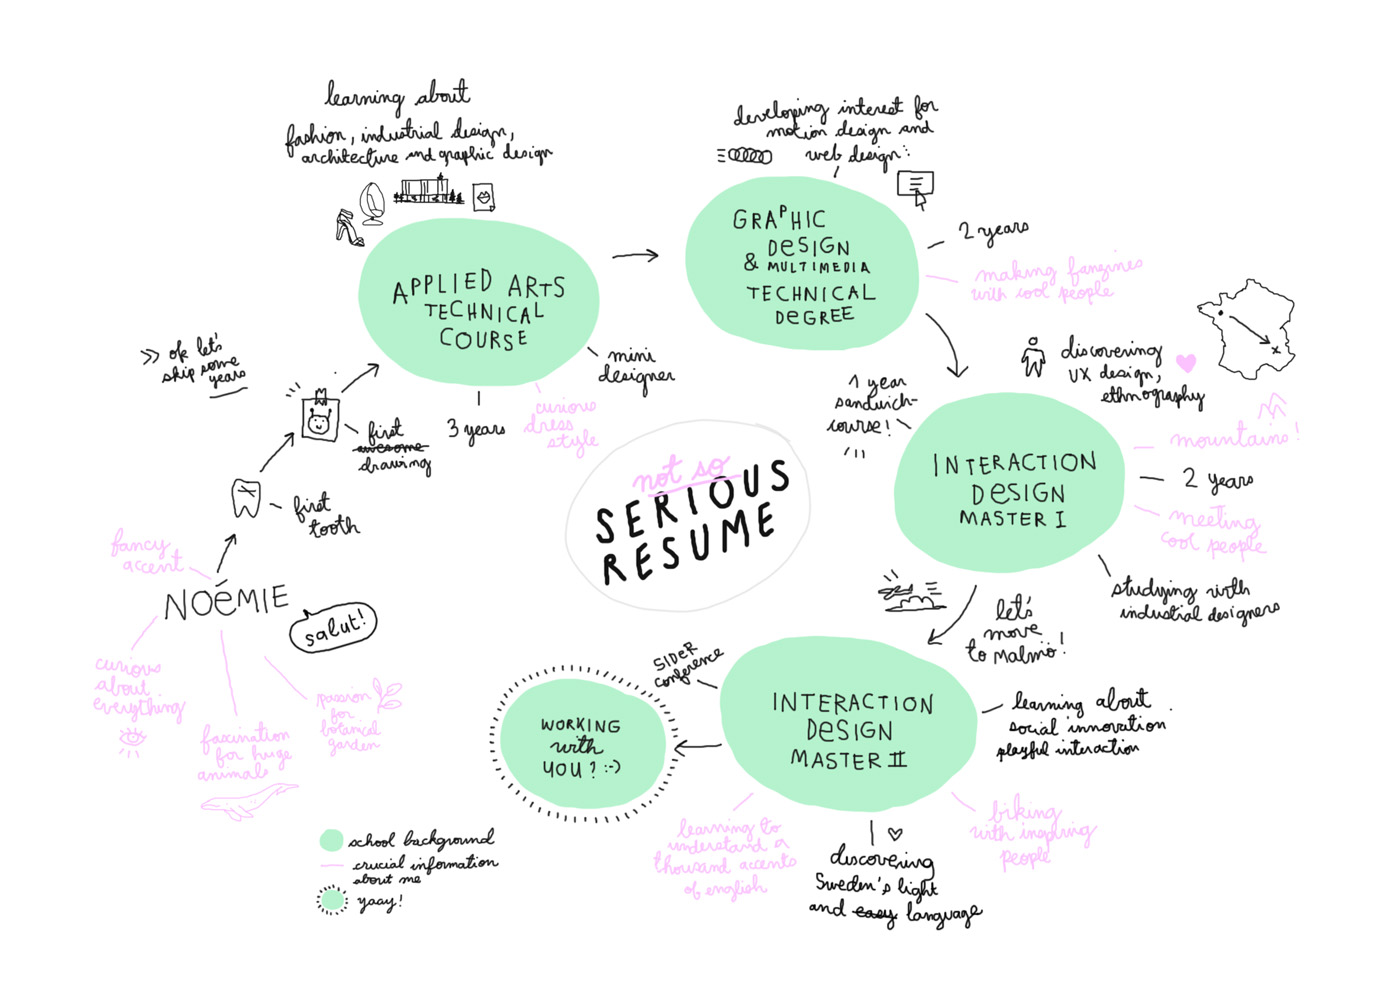 learning about
fashion, industrial design,
architecture and graphic design
APPLIED ARTS
TECHNICAL
COURSE
mini
designer
3 years
curious
dress
style
developing interest for
motion design and
web design
GRAPHIC
DESIGN
& MULTIMEDIA
TECHNICAL
DEGREE
2 years
making fanzines
with cool people
discovering
UX design,
ethnography
1 year
sandwich-
course!
INTERACTION
DESIGN
MASTER I
mountains!
2 years
meeting
cool people
studying with
industrial designers
>> ok let's
skip some
years
first
awesome
drawing
first
tooth
fancy
accent
NOÉMIE
salut!
curious
about
everything
fascination
for huge
animals
passion
for
botanical
garden
not so
SERIOUS
RESUME
let's
move
to Malmö!
SIDeR
conference
INTERACTION
DESIGN
MASTER II
learning about
social innovation
playful interaction
biking
with inspiring
people
discovering
Sweden's light
and easy language
learning to
understand a
thousand accents
of english
WORKING
with
YOU? :-)
school background
crucial information
about me
yaay!